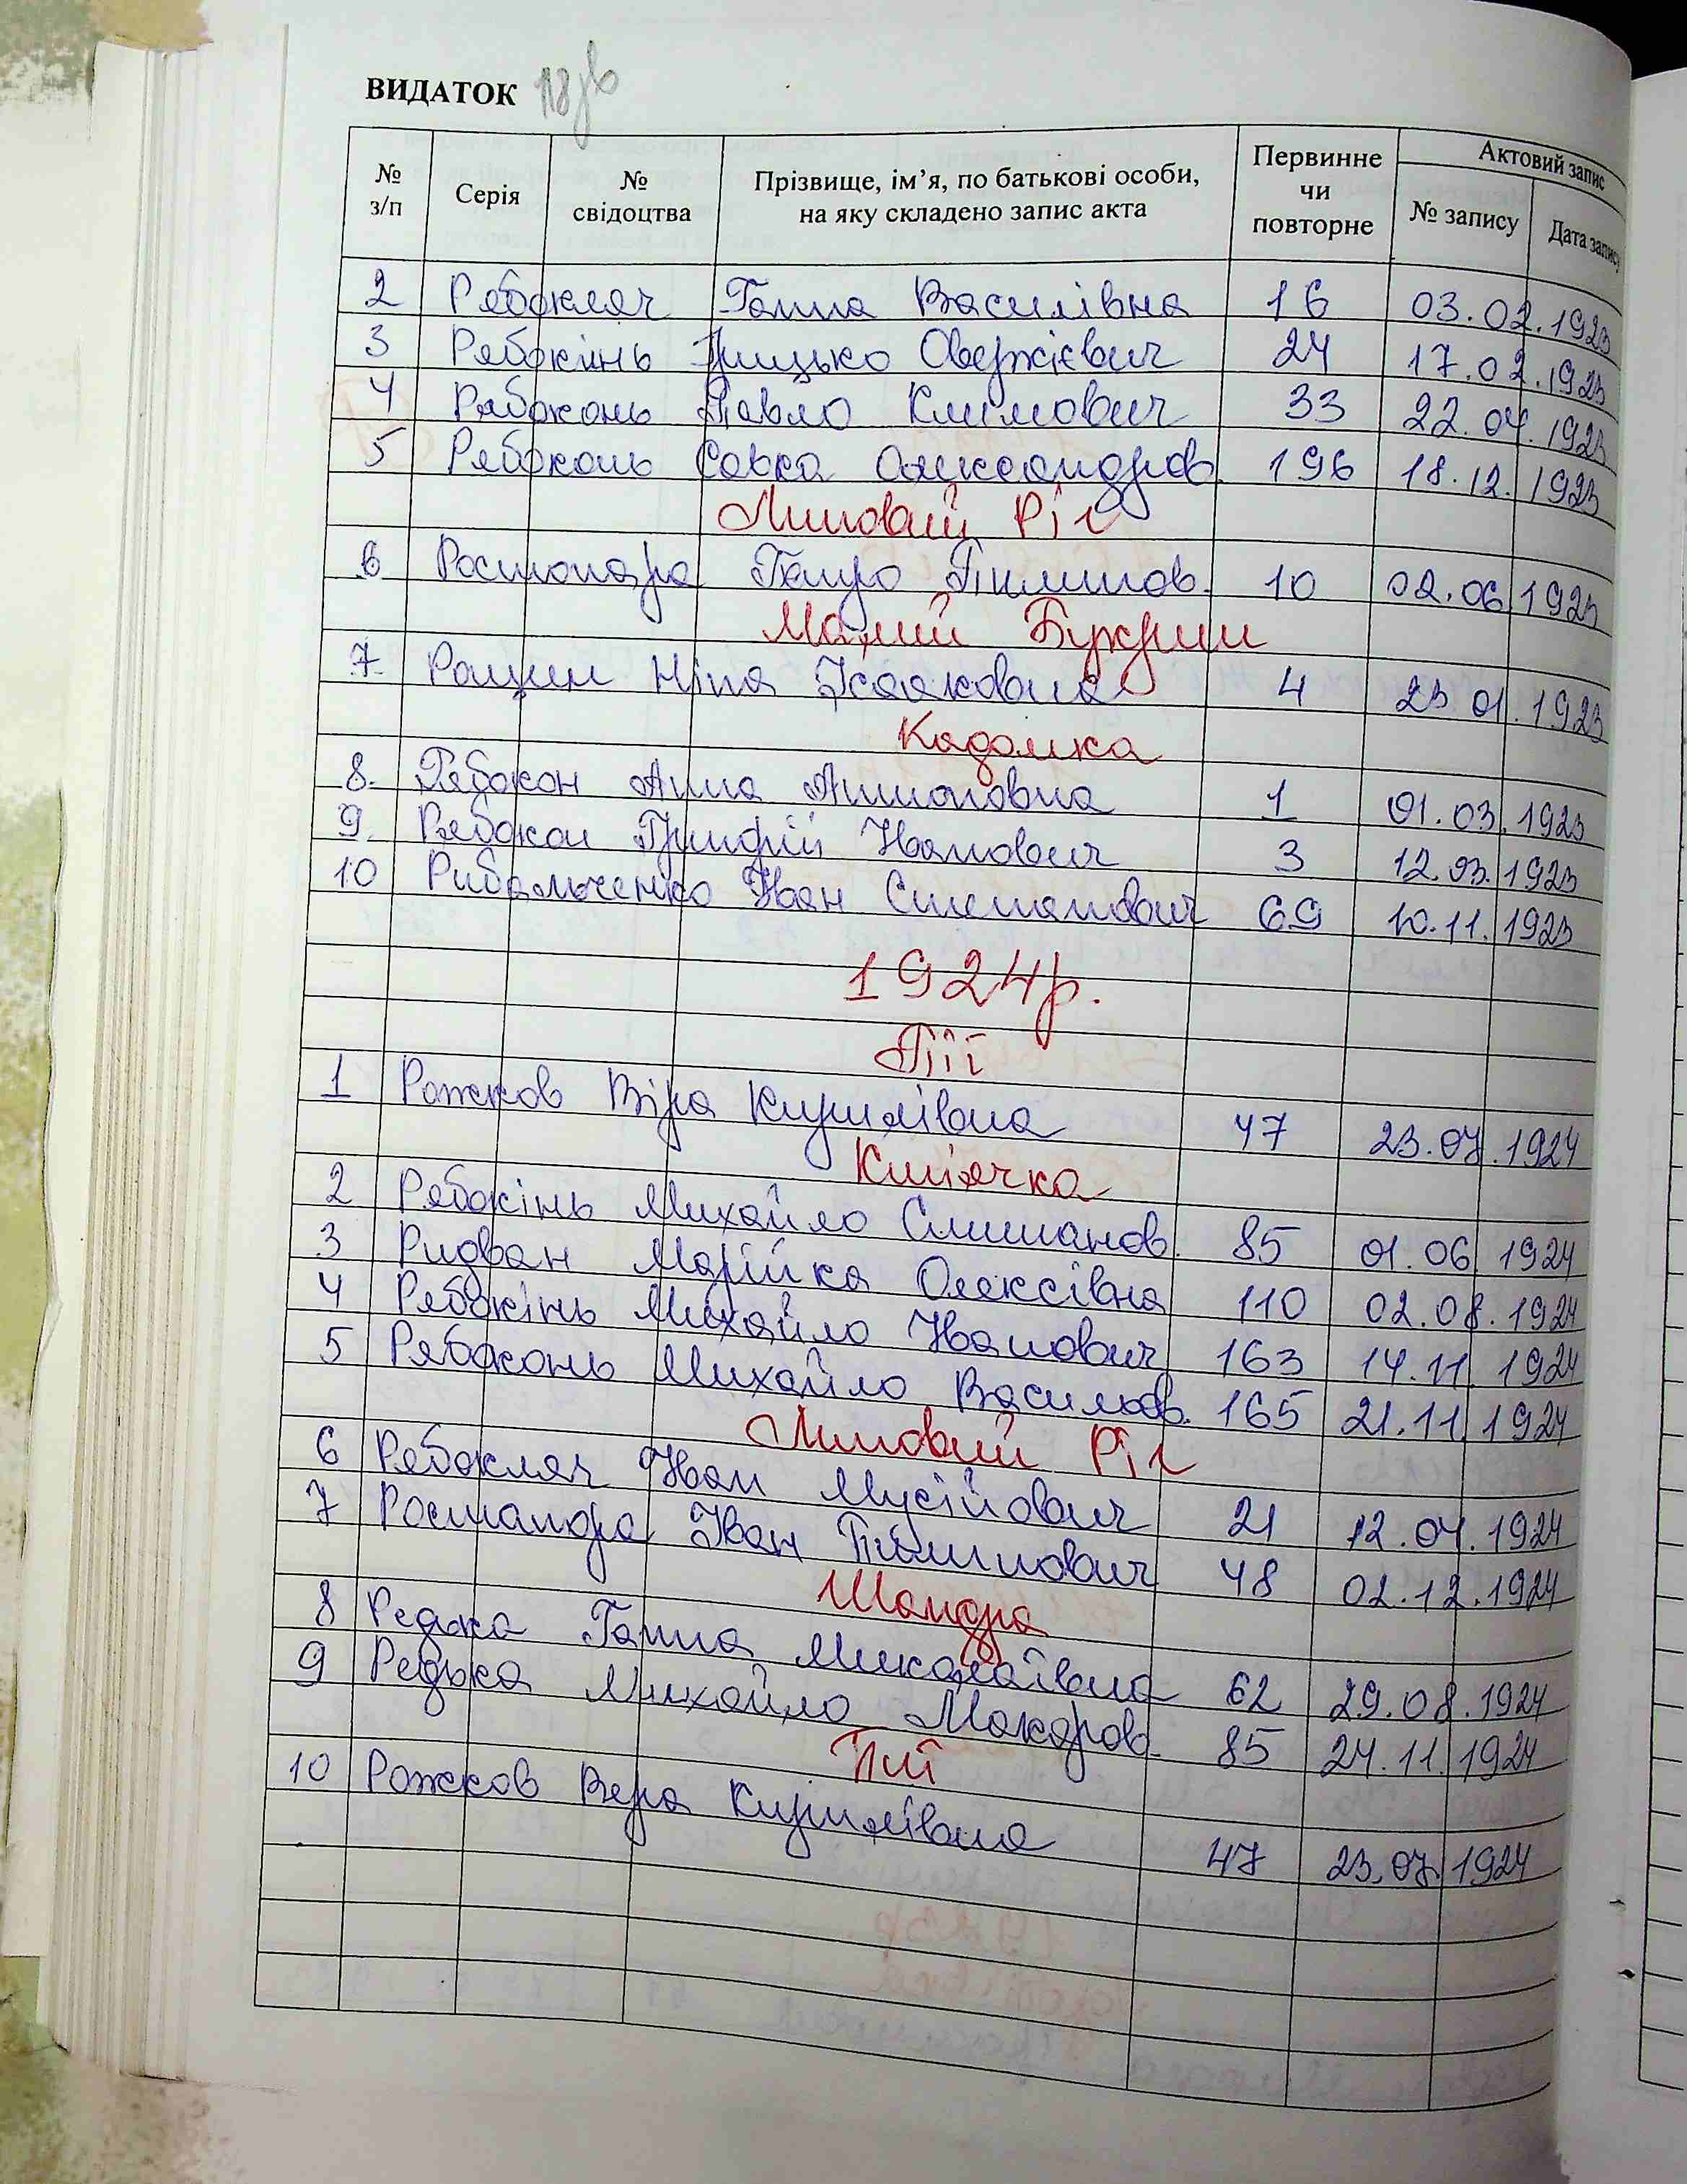 ВИДАТОК 118зв
№ з/п
Серія
№ свідоцтва
Прізвище, ім’я, по батькові особи,
на яку складено запис акта
Первинне
чи
повторне
Актовий запис
№ запису
Дата запису
2 Рябокляч Ганна Василівна 16 03.02.1923
3 Рябокінь Грицько Овержієвич 24 17.02.1923
4 Рябоконь Павло Климович 33 22.04.1923
5 Рябоконь Савка Олександров. 196 18.12.1923
Липовий Ріг
6 Ростопира Петро Пилипов. 10 02.06 1923
Малий Букрин
7. Ращин Ніна Ісааковна 4 23 01.1923
Кадомка
8. Рябокон Анна Антоновна 1 01.03.1923
9. Рябокон Григорій Иванович 3 12.03.1923
10 Рибальченко Иван Степанович 69 10.11.1923
1924р.
Пії
1 Рожков Віра Кирилівна 47 23.07.1924
Кип'ячка
2 Рябокінь Михайло Степанов. 85 01.06 1924
3 Ридван Марійка Олексівна 110 02.08.1924
4 Рябокінь Михайло Иванович 163 14.11 1924
5 Рябоконь Михайло Васильов. 165 21.11 1924
Липовий Ріг
6 Рябокляч Иван Мусійович 21 12.04.1924
7 Ростапира Іван Пилипович 48 02.12.1924
Шандра
8 Редька Ганна Микалаївна 62 29.08.1924
9 Редька Михайло Макаров. 85 24.11.1924
Пії
10 Рожков Вера Кирилівна 47 23.07.1924